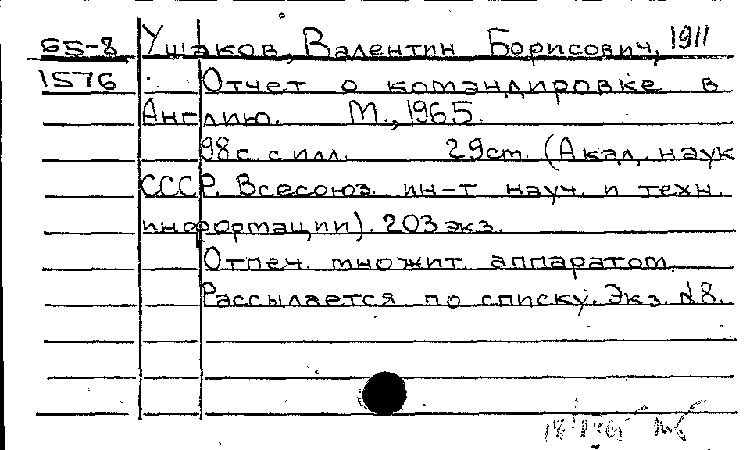 65-8 Ушаков, Валентин Борисович, 1911
1576 Отчет о командировке в
Англию. М., 1965.
98 с. с илл. 29 см. (Акад. наук
СССР. Всесоюз. ин-т науч. и техн.
информации). 203 экз.
Отпеч. множит. аппаратом
Рассылается по списку. Экз. №8.